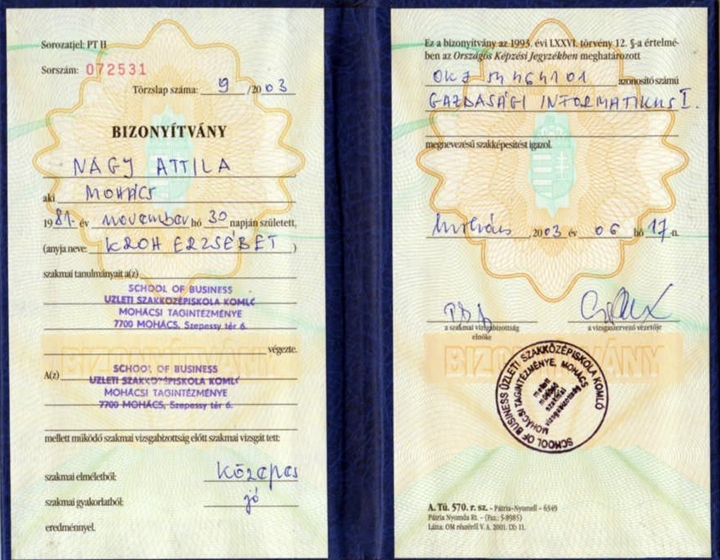 Sorozatjel: PT H
Sorszám: 072531
Törzslap száma: 9 /2003
BIZONYÍTVÁNY
NAGY ATTILA
aki MOHÁCS
1981. év november hó 30 napján született,
(anyja neve: KROH ERZSÉBET)
szakmai tanulmányait a(z)
SCHOOL OF BUSINESS
ÜZLETI SZAKKÖZÉPISKOLA KOMLÓ
MOHÁCSI TAGINTÉZMÉNYE
7700 MOHÁCS, Szepessy tér 6.
végezte.
A(z)
SCHOOL OF BUSINESS
ÜZLETI SZAKKÖZÉPISKOLA KOMLÓ
MOHÁCSI TAGINTÉZMÉNYE
7700 MOHÁCS, Szepessy tér 6.
mellett működő szakmai vizsgabizottság előtt szakmai vizsgát tett:
szakmai elméletből: közepes
szakmai gyakorlatból: jó
eredménnyel.
Ez a bizonyítvány az 1993. évi LXXVI. törvény 12. §-a értelmé-
ben az Országos Képzési Jegyzékben meghatározott
OKJ 54464101 azonosító számú
GAZDASÁGI INFORMATIKUS I.
megnevezésű szakképesítést igazol.
Mohács 2003 év 06 hó 17-n.
a szakmai vizsgabizottság
elnöke
a vizsgaszervező vezetője
BIZONYÍTVÁNY
SCHOOL OF BUSINESS ÜZLETI SZAKKÖZÉPISKOLA KOMLÓ
MOHÁCSI TAGINTÉZMÉNYE, MOHÁCS
mellett
működő
szakmai
vizsgabizottság
A. Tü. 570. r. sz. - Pátria-Nyomell - 6349
Pátria Nyomda Rt. - (Fax.: 5-8985)
Látta: OM részéről V. A. 2001. III. 11.